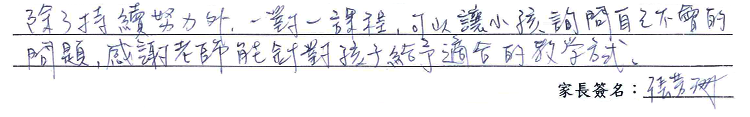 除了持續努力外,一對一課程,可以讓小孩詢問自己不會的
問題,感謝老師能針對孩子給予適合的教学方式。
家長簽名:張